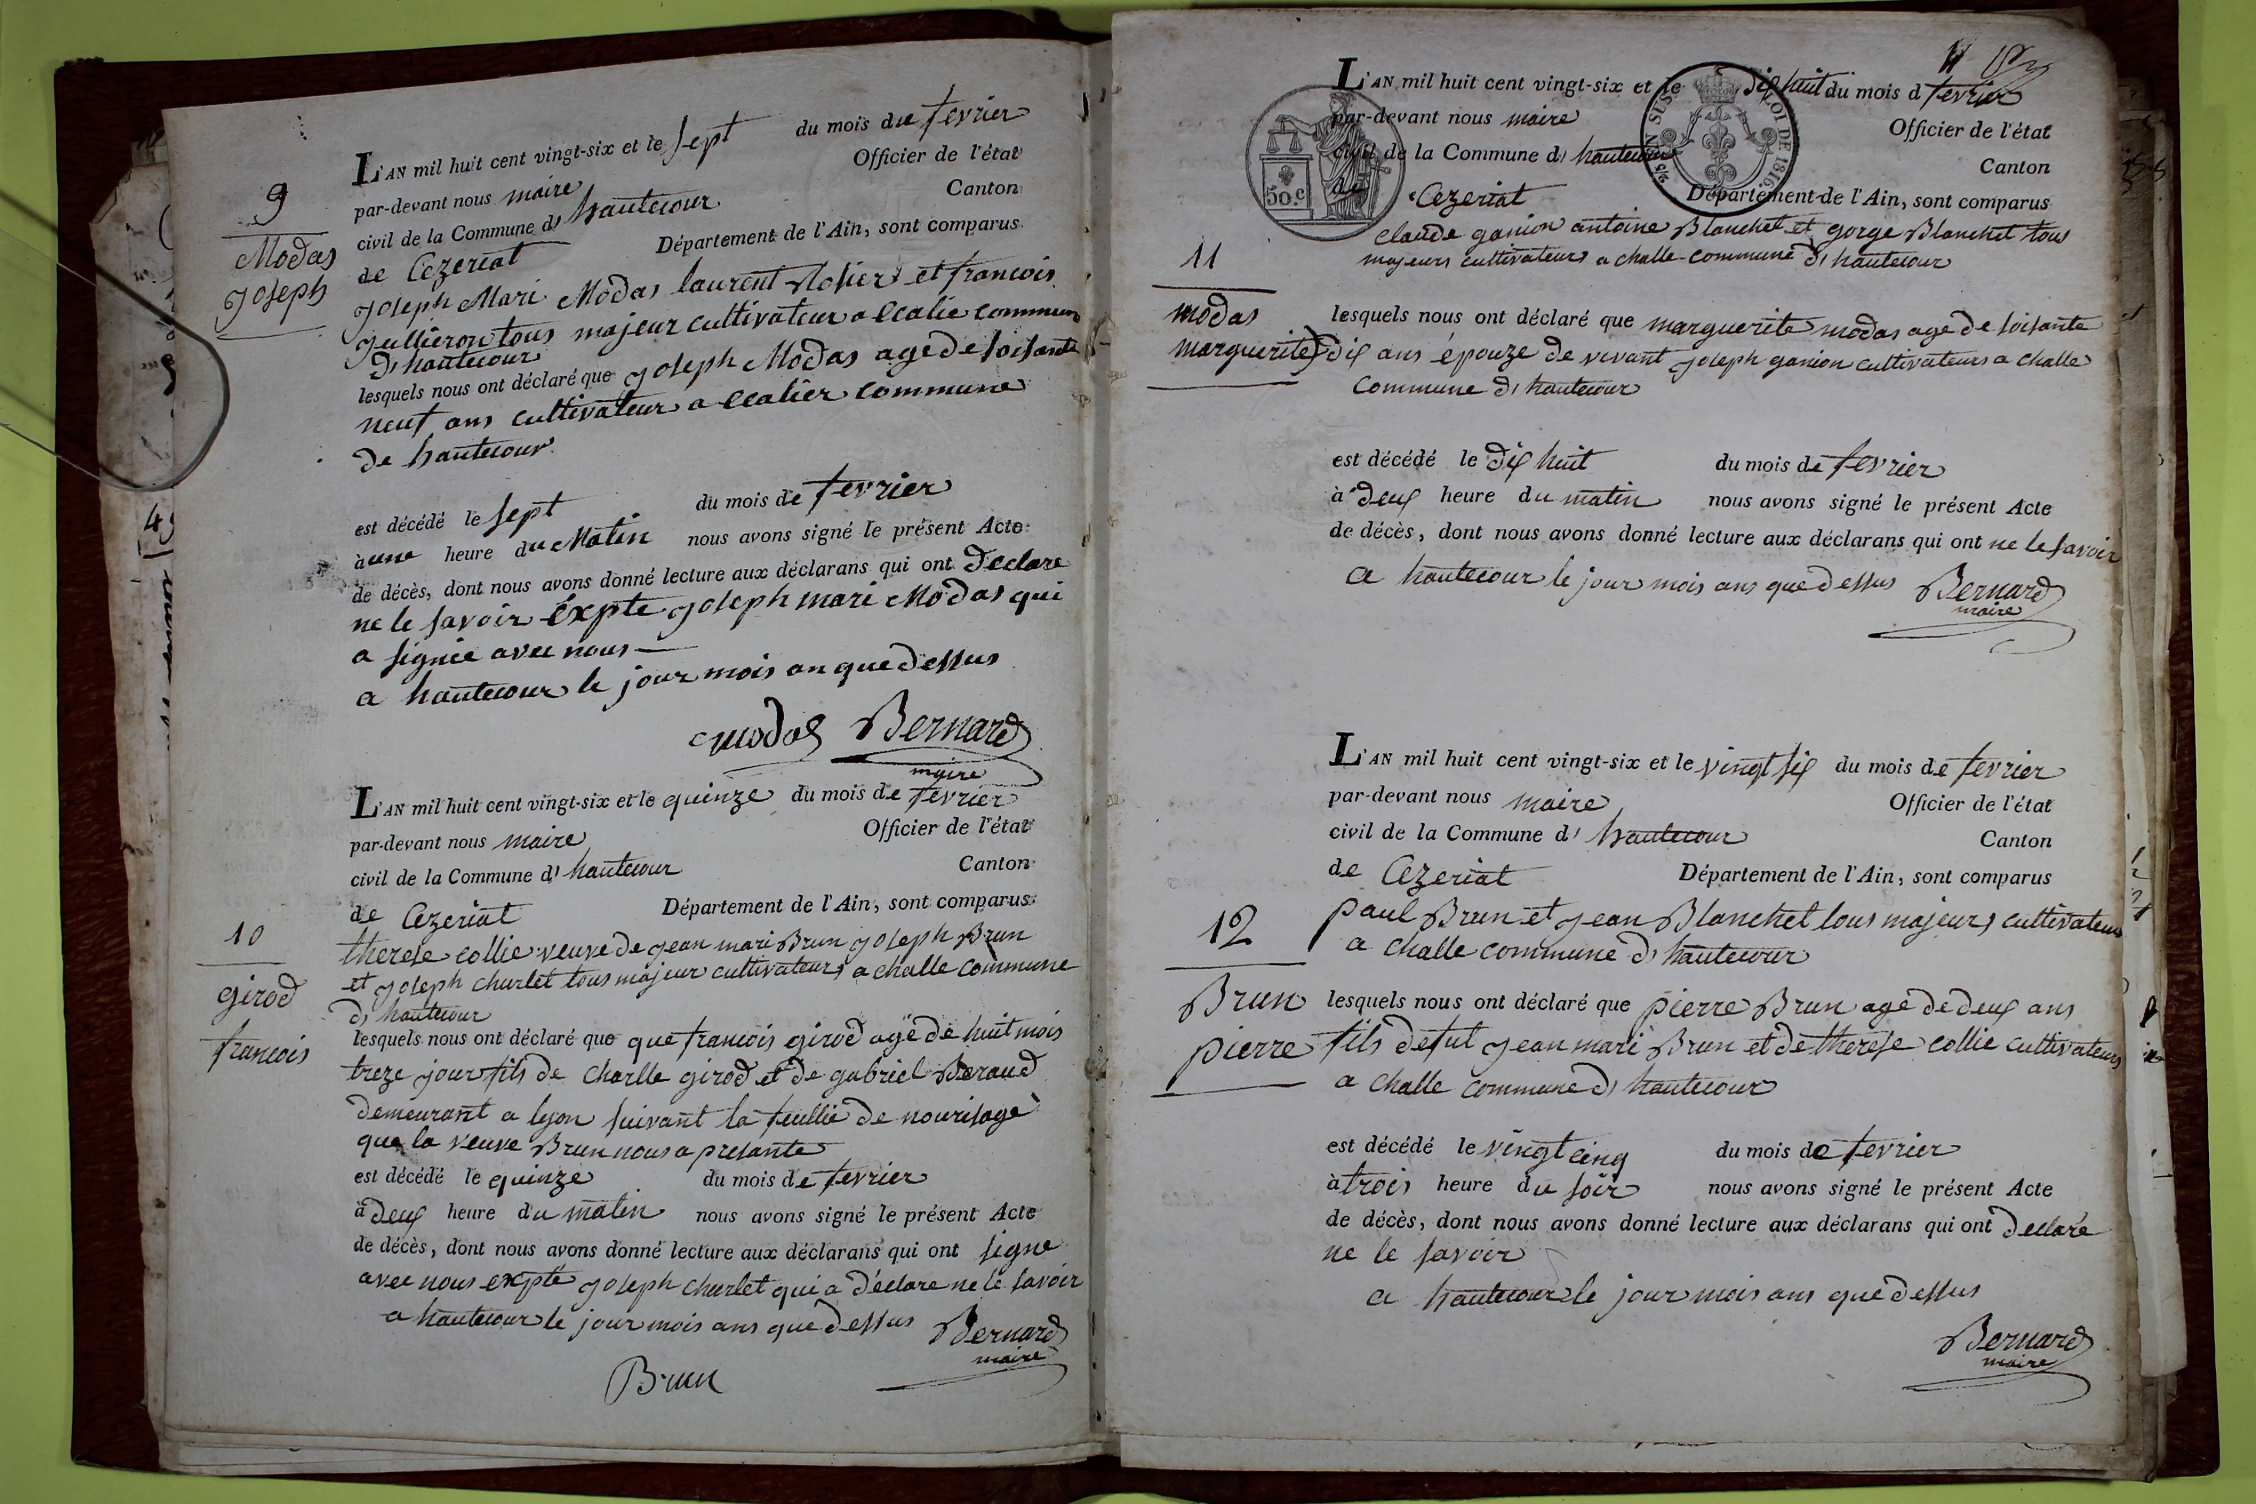 9
Modas
Joseph
L'AN mil huit cent vingt-six et le sept du mois du fevrier
par-devant nous maire Officier de l'état
civil de la Commune d' hautecour Canton
de Cezeriat Département de l'Ain, sont comparus
Joseph Mari Modas laurent Rosier et francois
Jullieron tous majeur cultivateur a Ecalie commune
d'hautecour
lesquels nous ont déclaré que Joseph Modas age de soisante
neuf ans cultivateur a Ecalier commune
de hautecour
est décédé le sept du mois de fevrier
à une heure du Matin nous avons signé le présent Acte
de décès, dont nous avons donné lecture aux déclarans qui ont Declare
ne le savoir Expte Joseph mari Modas qui
a signée avec nous
a hautecour le jour mois an que dessus
modas Bernard
maire
10
girod
francois
L'AN mil huit cent vingt-six et le quinze du mois de fevrier
par-devant nous maire Officier de l'état
civil de la Commune d' hautecour Canton
de Cezeriat Département de l'Ain, sont comparus
therese collie veuve de jean mari Brun Joseph Brun
et Joseph churlet tous majeur cultivateurs a challe commune
d'hautecour
lesquels nous ont déclaré que que francois girod agé de huit mois
treze jour fils de Charlle girod et de gabriel Beraud
demeurant a lyon suivant la feullie de nourisage
que la veuve Brun nous a presante
est décédé le quinze du mois de fevrier
à deux heure du matin nous avons signé le présent Acte
de décès, dont nous avons donné lecture aux déclarans qui ont signe
avec nous expté Joseph churlet qui a déclare ne le savoir
a hautecour le jour mois ans que dessus Bernard
maire
Brun
11
L'AN mil huit cent vingt-six et le dix huit du mois d fevrier
par-devant nous maire Officier de l'état
civil de la Commune d' hautecour Canton
de Cezeriat Département de l'Ain, sont comparus
50 c
LOI DE 1816.
claude ganion antoine Blanchet et gorge Blanchet tous
majeurs cultivateurs a challe commune d'hautecour
11
modas
marguerite
lesquels nous ont déclaré que marguerite modas age de soisante
dix ans épouze de vivant Joseph ganion cultivateurs a challe
Commune d'hautecour
est décédé le dix huit du mois de fevrier
à deux heure du matin nous avons signé le présent Acte
de décès, dont nous avons donné lecture aux déclarans qui ont ne le savoir
a hautecour le jour mois ans que dessus Bernard
maire
L'AN mil huit cent vingt-six et le vingt six du mois de fevrier
par-devant nous maire Officier de l'état
civil de la Commune d' hautecour Canton
de Cezeriat Département de l'Ain, sont comparus
12
Brun
pierre
paul Brun et jean Blanchet tous majeurs cultivateurs
a challe commune d'hautecour
lesquels nous ont déclaré que pierre Brun age de deux ans
fils defut jean mari Brun et de therese collie cultivateurs
a challe commune d'hautecour
est décédé le vingt cinq du mois de fevrier
à trois heure du soir nous avons signé le présent Acte
de décès, dont nous avons donné lecture aux déclarans qui ont declare
ne le savoir
a hautecour le jour mois ans que dessus
Bernard
maire